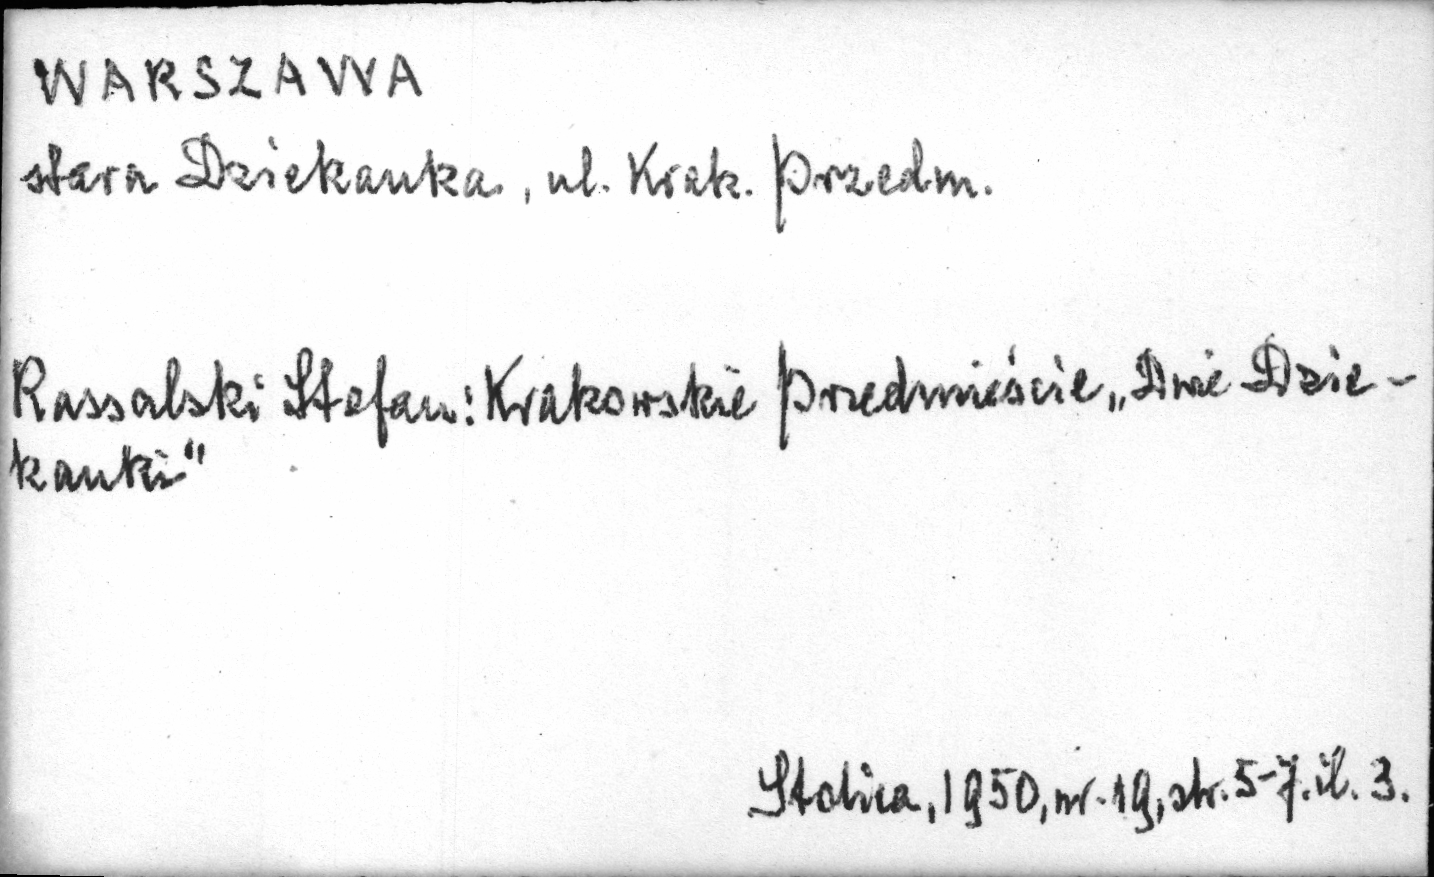 WARSZAWA
stara Dziekanka, ul. Krak. Przedm.
Rassalski Stefan: Krakowskie Przedmieście „Dwie Dzie-
kanki"
Stolica, 1950, nr. 19, str. 5-7. il. 3.